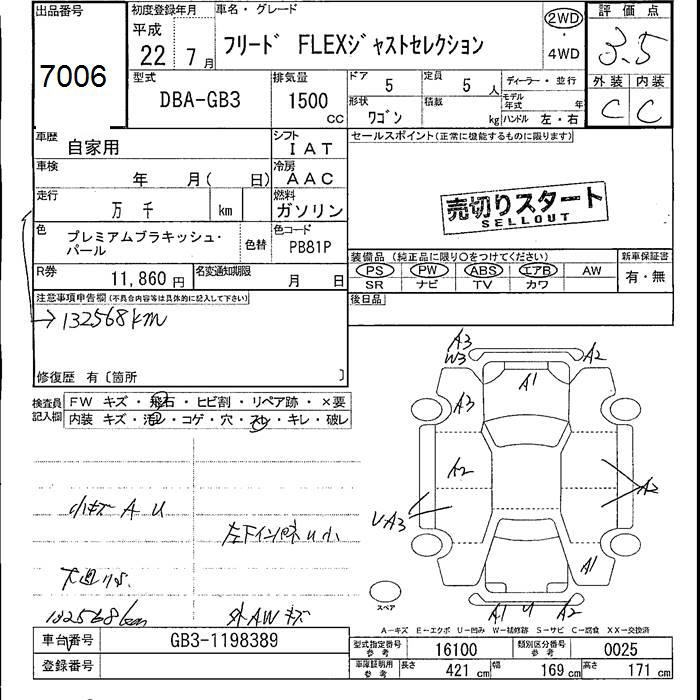 出品番号
7006
初度登録年月
平成
22 7月
車名・グレード
フリード FLEXジャストセレクション
2WD
・
4WD
評価点
3.5
外装 内装
C C
型式
DBA-GB3
排気量
1500
CC
ドア
5
定員
5 人
ディーラー・並行
形状
ワゴン
積載
kg
モデル年式 年
ハンドル 左・右
車歴
自家用
シフト
IAT
車検
年 月( 日)
冷房
AAC
走行
万 千 km
燃料
ガソリン
色
プレミアムブラキッシュ・
パール
色替
色コード
PB81P
R券
11,860 円
名変通知期限
月 日
セールスポイント(正常に機能するものに限ります)
売切りスタート
SELLOUT
装備品(純正品に限り○をつけてください)
PS PW ABS エアB AW
SR ナビ TV カワ
新車保証書
有・無
後日品
注意事項申告欄(不具合内容等は具体的に記入して下さい)
→132568km
修復歴 有〔箇所 〕
検査員
記入欄
FW キズ・飛石・ヒビ割・リペア跡・×要
内装 キズ・汚レ・コゲ・穴・スレ・キレ・破レ
小キズ A U
132568km
外AWキズ
A3
W3
A2
A1
A3
A2
A2
UA3
A1
スペア
A1 U A2
A―キズ E―エクボ U―凹み W―補修跡 S―サビ C―腐食 XX―交換済
車台番号
GB3-1198389
登録番号
型式指定番号
参考
16100
類別区分番号
参考
0025
車庫証明用
参考
長さ
421 cm
幅
169 cm
高さ
171 cm